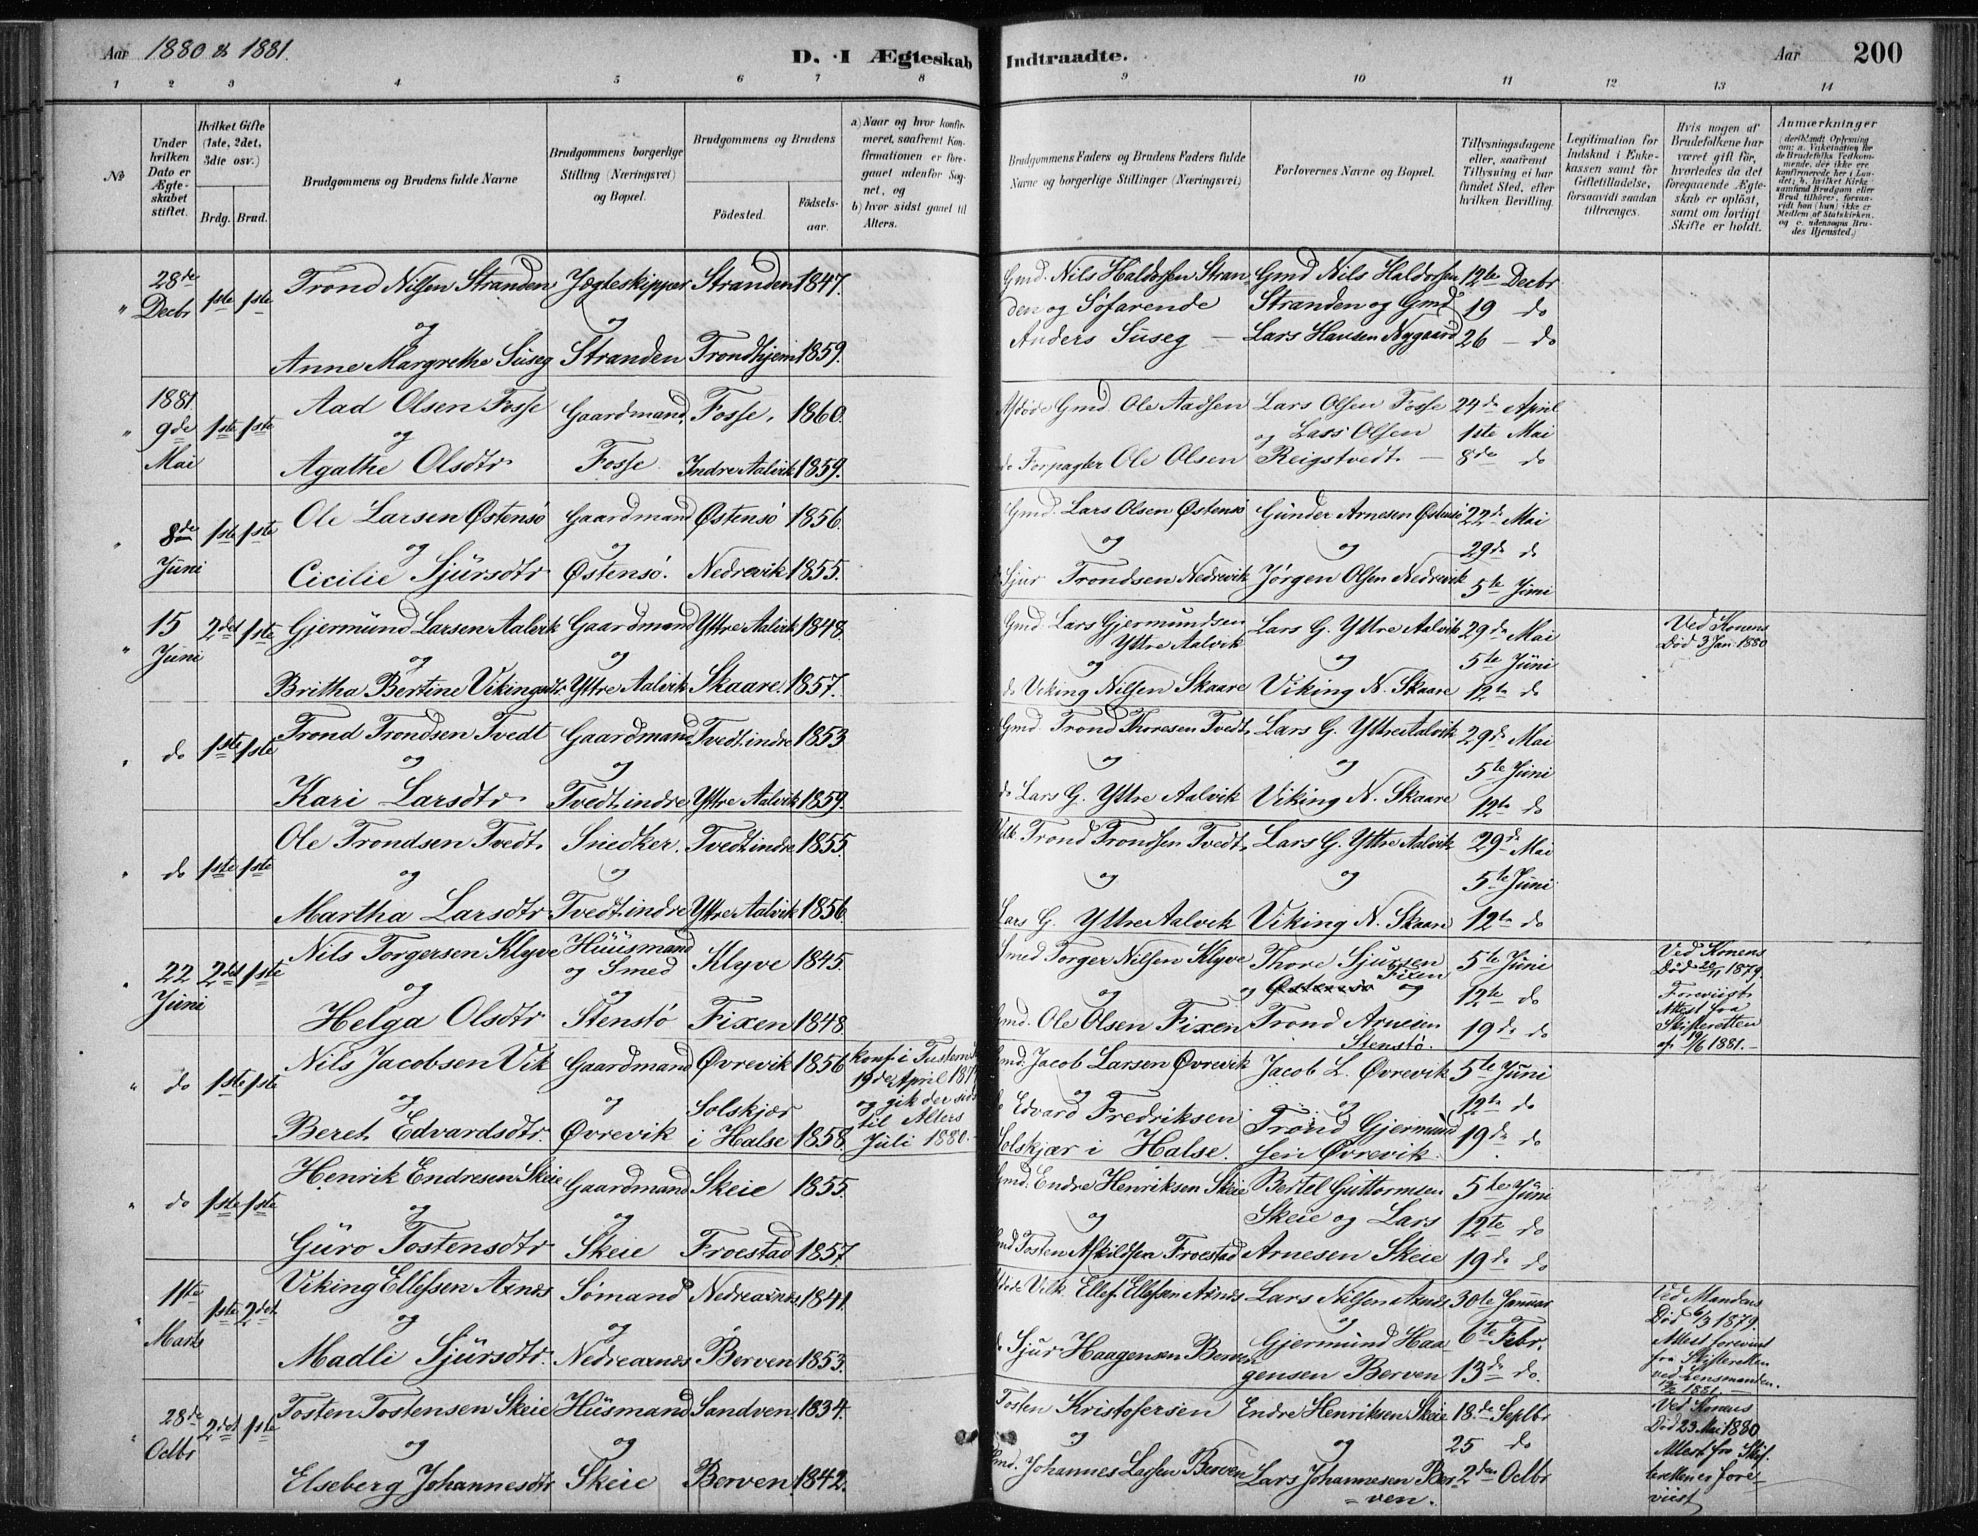 Aar 1880 & 1881.
D. I Ægteskab Indtraadte.
Aar 200
1 2 3 4 5 6 7 8 9 10 11 12 13 14
No
Under hvilken Dato er Ægteskabet stiftet.
Hvilket Gifte (1ste, 2det, 3die osv.)
Brdg. Brud.
Brudgommens og Brudens fulde Navne
Brudgommens borgerlige Stilling (Næringsvei) og Bopæl.
Brudgommens og Brudens
Fødested.
Fødselsaar.
a) Naar og hvor konfirmeret, saafremt Konfirmationen er foregaaet udenfor Sognet, og
b) hvor sidst gaaet til Alters.
Brudgommens Faders og Brudens Faders fulde Navne og borgerlige Stillinger (Næringsvei)
Forlovernes Navne og Bopæl.
Tillysningsdagene eller, saafremt Tillysning ei har fundet Sted, efter hvilken Bevilling.
Legitimation for Indskud i Enkekassen samt for Giftetilladelse, forsaavidt saadan tiltrænges.
Hvis nogen af Brudefolkene har været gift før, hvorledes da det foregaaende Ægteskab er opløst, samt om lovligt Skifte er holdt.
Anmærkninger
28de Decbr 1ste 1ste Trond Nilsen Stranden Jægteskipper Stranden 1847. Gmd. Nils Haldorsen Stran- Gmd Nils Haldorsen 12te Decbr
og og den og Søfarende Stranden og Gmd 19 do
Anne Margrethe Suseg Stranden Trondhjem 1859. Anders Suseg — Lars Hansen Nygaard 26 - do
1881 9de Mai 1ste 1ste Aad Olsen Fosse Gaardmand, Fosse, 1860. Afdøde Gmd. Ole Aadsen Lars Olsen Fosse 24de April
og og Lars Olsen 1ste Mai
Agathe Olsdtr Fosse Indre Aalvik 1859. do Forpagter Ole Olsen Reigstvedt — 8de do
8de Juni 1ste 1ste Ole Larsen Østensø Gaardmand Østensø 1856. Gmd. Lars Olsen Østensø Gunder Arnesen Østensø 22de Mai
og og og 29de do
Cicilie Sjursdtr Østensø. Nedrevik 1855. Sjur Trondsen Nedrevik Jørgen Olsen Nedrevik 5te Juni
15 Juni 2det 1ste Gjermund Larsen Aalvik Gaardmand Yttre Aalvik 1848. Gmd. Lars Gjermundsen Yttre Aalvik Lars G. Yttre Aalvik 29de Mai Ved Konens Død 3 Jan 1880
og og og og 5te Juni
Britha Bertine Vikingsdtr Yttre Aalvik Skaare. 1857. do Viking Nilsen Skaare Viking N. Skaare 12te do
do 1ste 1ste Trond Trondsen Tvedt Gaardmand Tvedt indre 1853 Gmd. Trond Thoresen Tvedt, Lars G. Yttre Aalvik 29de Mai
og og og og 5te Juni
Kari Larsdtr Tvedt indre Yttre Aalvik 1859. do Lars G. Yttre Aalvik Viking N. Skaare 12te do
do 1ste 1ste Ole Trondsen Tvedt. Snedker. Tvedt indre 1855. Trond Trondsen Tvedt, Lars G. Yttre Aalvik 29de Mai
og og og og 5te Juni
Martha Larsdtr Tvedt indre Yttre Aalvik 1856 Lars G. Yttre Aalvik Viking N. Skaare 12te do
22 Juni 2det 1ste Nils Torgersen Klyve Huusmand og Smed Klyve 1845. Smed Torger Nilsen Klyve Thore Sjursen 5te Juni Ved Konens Død 1879.
og og og og Fixen og 12te do Foreviist Attest fra
Helga Olsdtr Stenstø Fixen 1848 Gmd. Ole Olsen Fixen Trond Arnesen Stenstø. 19de do Skifteretten af 1881. —
do 1ste 1ste Nils Jacobsen Vik Gaardmand Øvrevik 1856 Konf. i 19de April Gmd. Jacob Larsen Øvrevik Jacob L. Øvrevik 5te Juni
og og Solskjær og gik der sidst til Alters og og 12te do
Beret Edvardsdtr. Øvrevik i Halse 1858. Juli 1880. — do Edvard Fredriksen Solskjær i Halse. Trond Gjermundsen Øvrevik. 19de do
do 1ste 1ste Henrik Endresen Skeie Gaardmand Skeie 1855. Gmd. Endre Henriksen Skeie Bertel Guttormsen 5te Juni
og og og Skeie og Lars 12te do
Guro Tostensdtr Skeie Froestad 1857 Gmd Tosten Askildsen Froestad Arnesen Skeie 19de do
11te Marts 1ste 2det. Viking Ellefsen Axnes Sømand Nedreaxnes 1841. Ellef Ellefsen Axnes Lars Nilsen Axnes 30te Januar Ved Mandens Død 6/3 1879.
og og og 6te Febr. Attest foreviist fra Skifteretten
Madli Sjursdtr. Nedreaxnes Berven 1853. do Sjur Haagensen Berven Gjermund Haagensen Berven 13de do. ved Lensmanden. 1881. —
28de Octbr 2det 1ste Tosten Tostensen Skeie Husmand Sandven 1834. Tosten Kristofersen Endre Henriksen Skeie 18de Septbr Ved Konens Død 23 Mai 1880
og og og og 25 do Attest fra Skif-
Elseberg Johannesdtr Skeie Berven 1842. Gmd. Johannes Larsen Berven Lars Johannesen Ber- = ven. 2den Octbr teretten er fore- viist